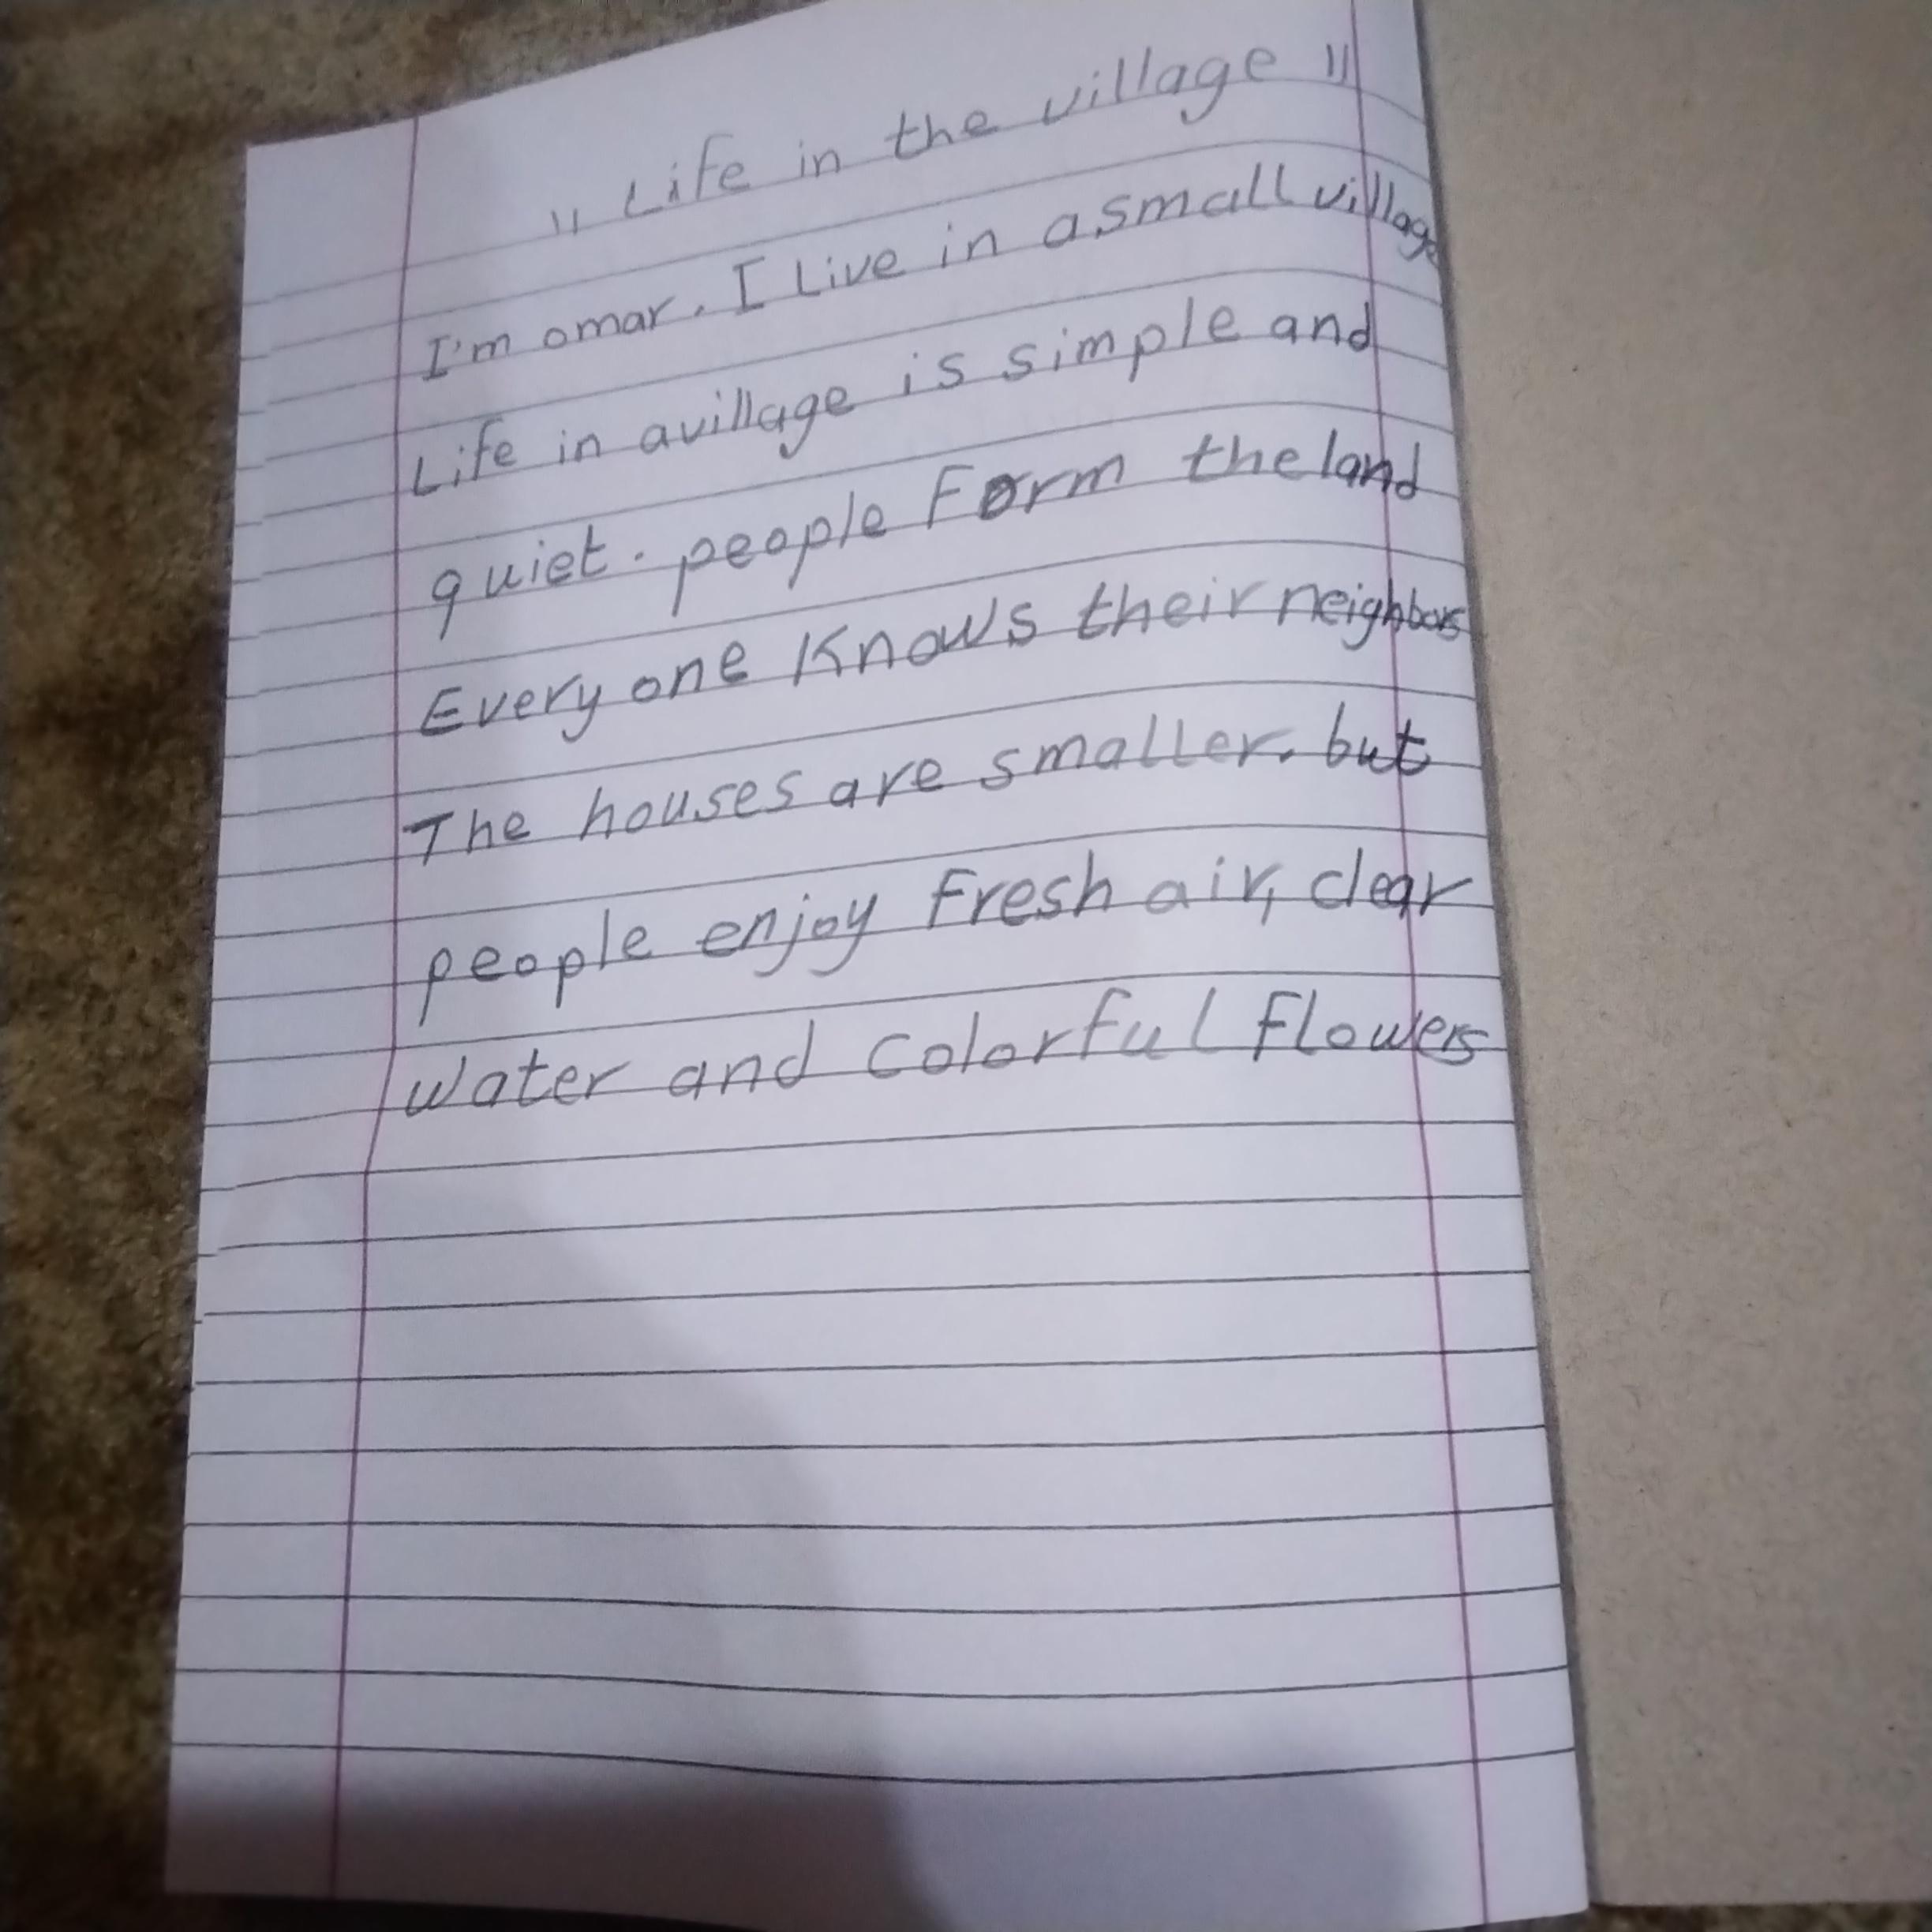 " Life in the village "
I'm omar. I Live in a small village
Life in a village is simple and
quiet. people Form the land
Every one Knows their neighbors
The houses are smaller. but
people enjoy Fresh air, clear
water and colorful flowers